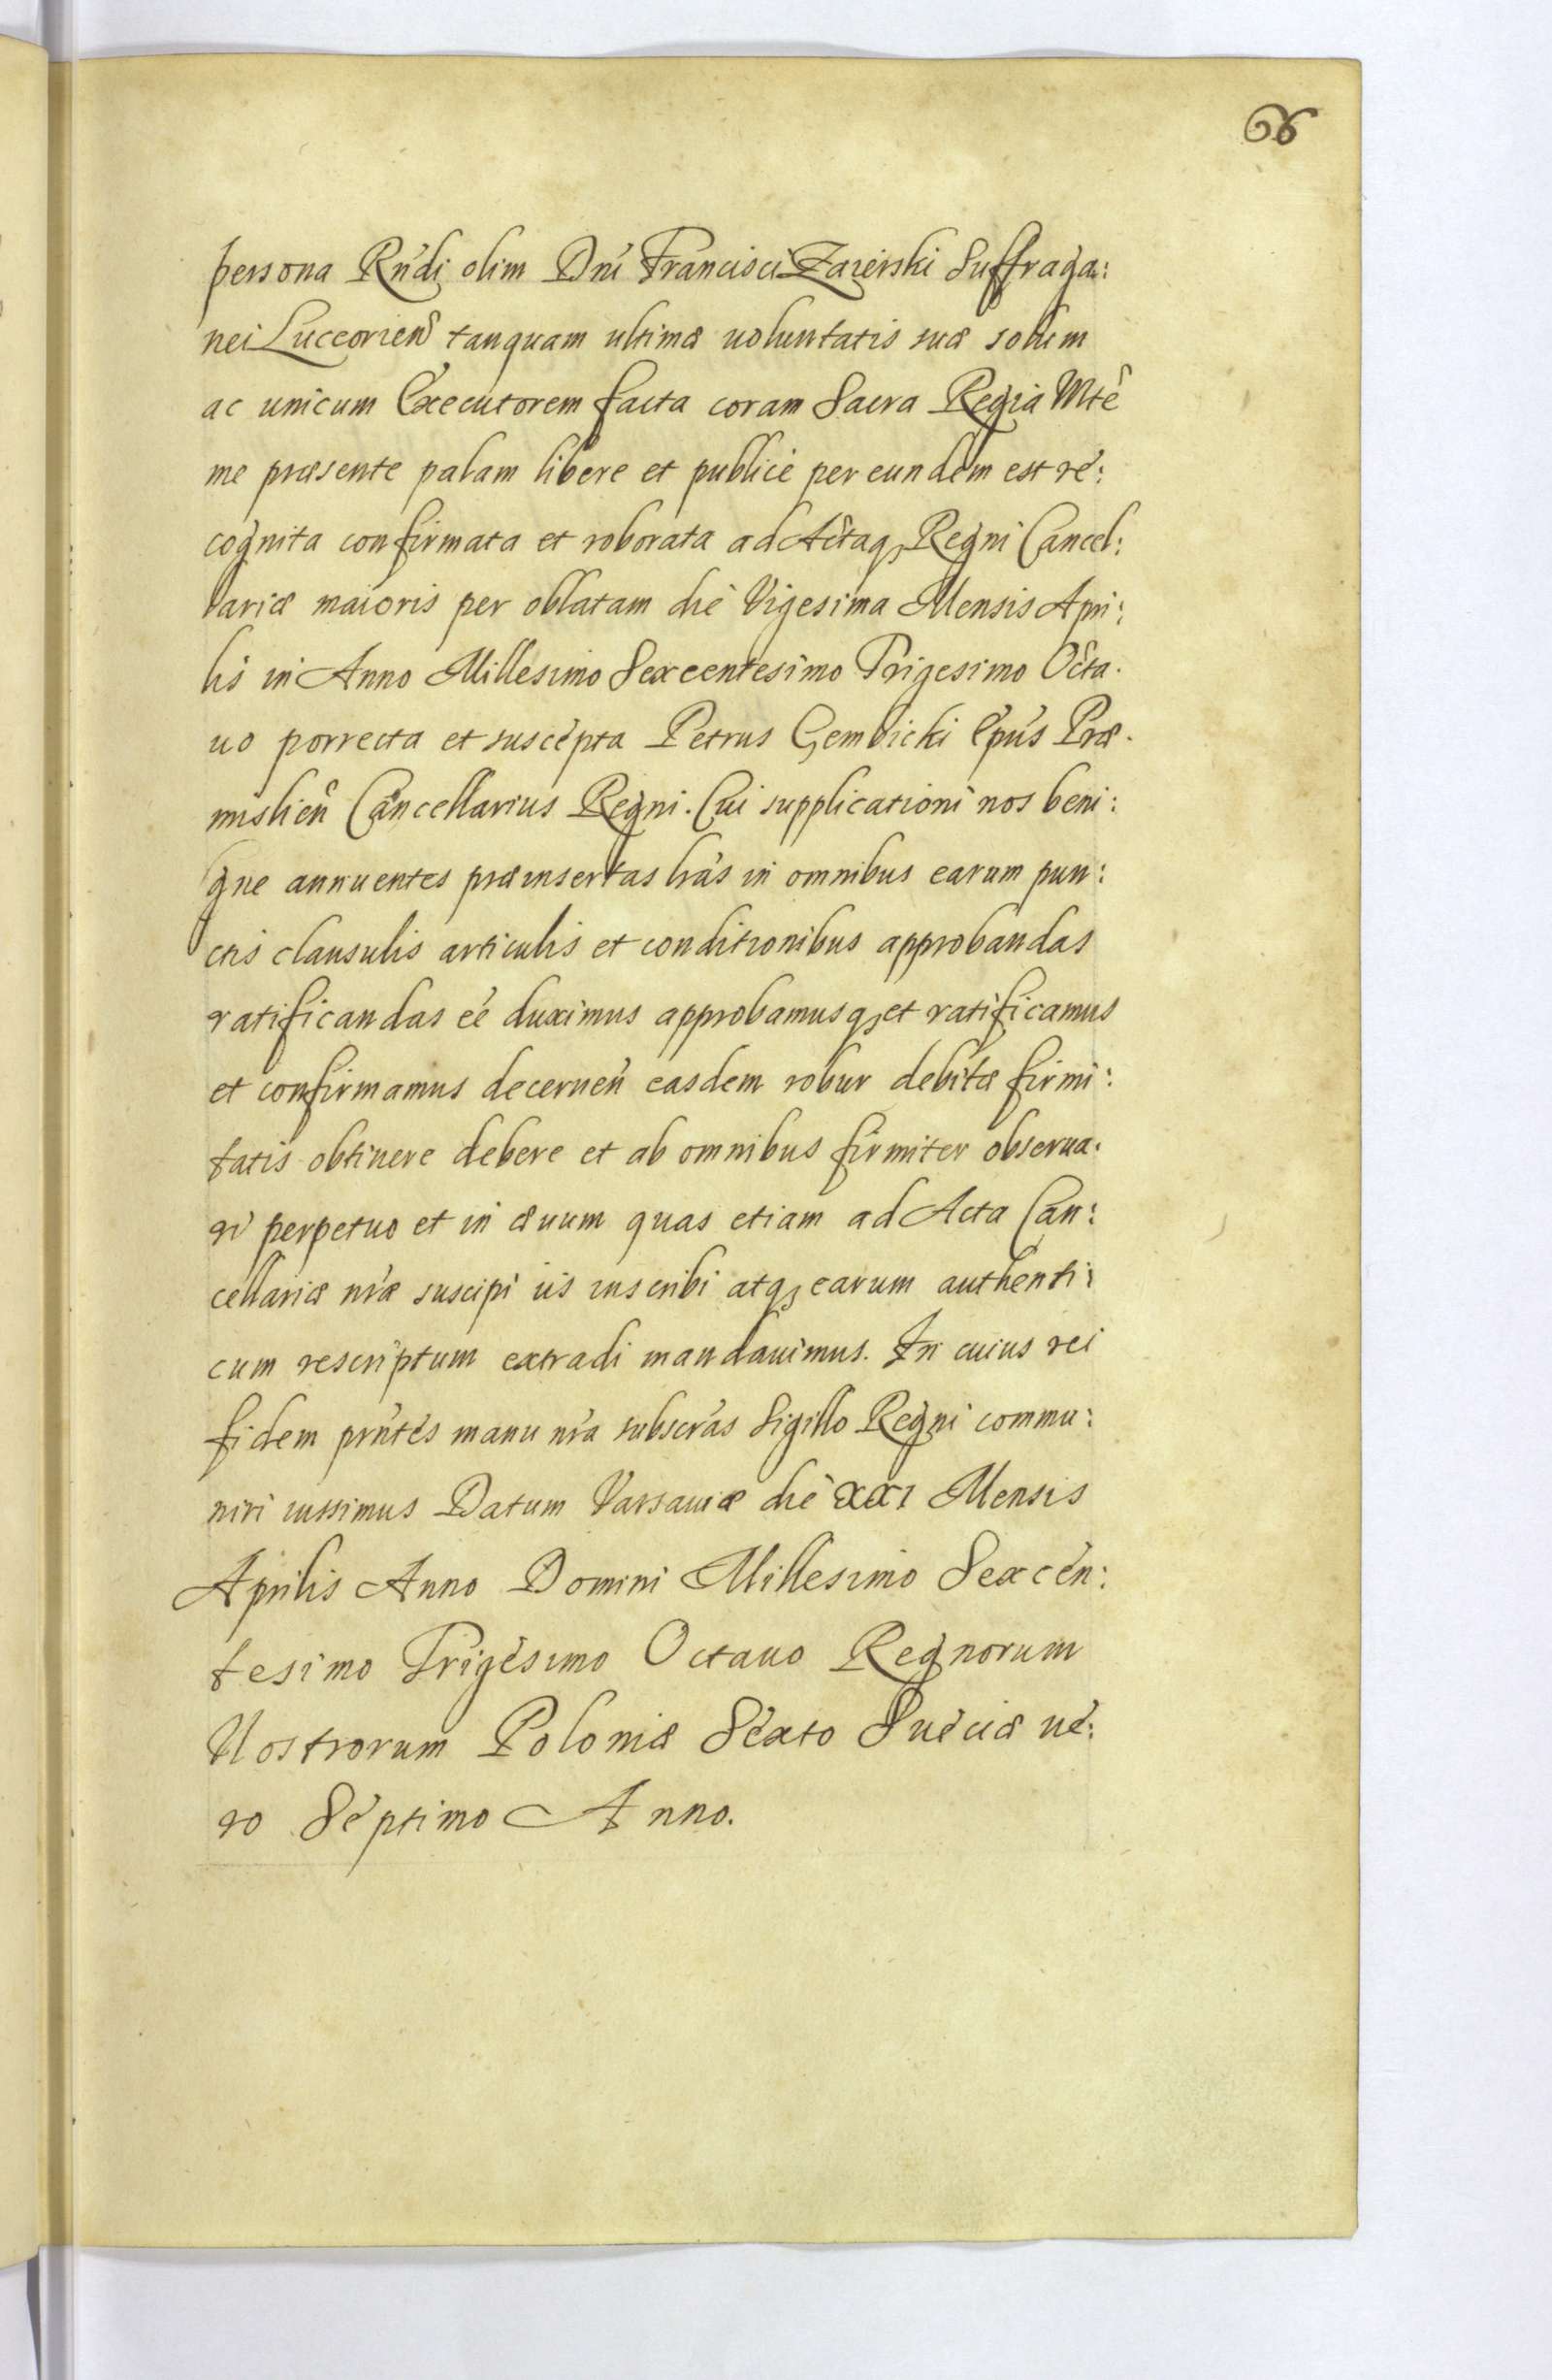 66
persona Rńdi olim Dńi Francisci Zaierski Suffraga:
nei Luceorien̂ tanquam ultimæ uoluntatis suæ solum
ac unicum Executorem facta coram Sacra Regia Mtê
me præsente palam libere et publicè per eundem est re:
cognita confirmata et roborata ad Actaq₃ Regni Cancel:
lariæ maioris per oblatam die Vigesima Mensis Apri:
lis in Anno Millesimo Sexcentesimo Trigesimo Octa.
uo porrecta et suscepta Petrus Gembicki Epús Præ.
mislien̂ Cancellarius Regni. Cui supplicationi nos beni:
gne annuentes præinsertas lrás in omnibus earum pun:
ctis clausulis articulis et conditionibus approbandas
ratificandas eé duximus approbamusq₃ et ratificamus
et confirmamus decerneń easdem robur debitæ firmi:
tatis obtinere debere et ab omnibus firmiter obserua.
ri perpetuo et in æuum quas etiam ad Acta Can:
cellariæ nræ suscipi iis inscribi atq₃ earum authenti:
cum rescriptum extradi mandauimus. In cuius rei
fidem prńtes manu nrá subscrás Sigillo Regni commu:
niri iussimus Datum Varsauiæ die XXI Mensis
Aprilis Anno Domini Millesimo Sexcen:
tesimo Trigesimo Octauo Regnorum
Nostrorum Poloniæ Sexto Sueciæ ue:
ro Septimo Anno.